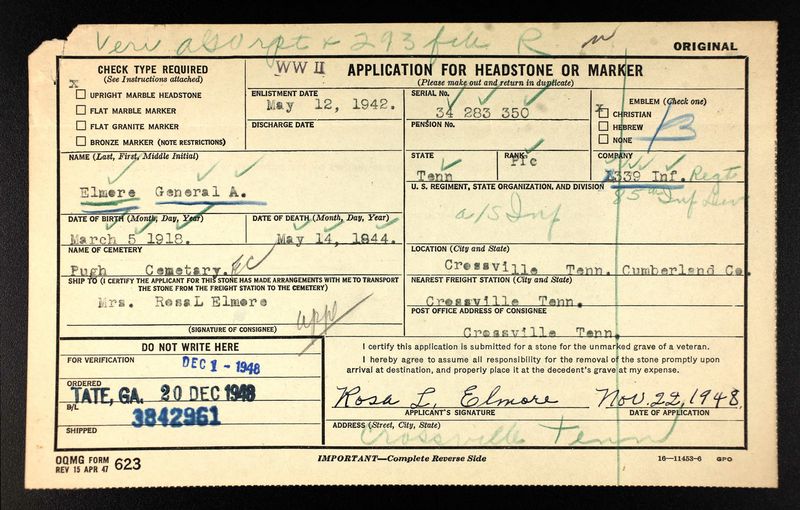 Veri also rpt & 293 file R
ORIGINAL
CHECK TYPE REQUIRED
(See Instructions attached)
X
UPRIGHT MARBLE HEADSTONE
FLAT MARBLE MARKER
FLAT GRANITE MARKER
BRONZE MARKER (NOTE RESTRICTIONS)
WW II
APPLICATION FOR HEADSTONE OR MARKER
(Please make out and return in duplicate)
ENLISTMENT DATE
May 12, 1942.
DISCHARGE DATE
SERIAL No.
34 283 350
PENSION No.
EMBLEM (Check one)
X
CHRISTIAN
HEBREW
NONE
B
NAME (Last, First, Middle Initial)
Elmore General A.
STATE
Tenn
RANK
Pfc
COMPANY
339 Inf. Regt
85th Inf Div
U. S. REGIMENT, STATE ORGANIZATION, AND DIVISION
a/S Inf
DATE OF BIRTH (Month, Day, Year)
March 5 1918.
DATE OF DEATH (Month, Day, Year)
May 14, 1944.
NAME OF CEMETERY
Pugh Cemetary. EC
LOCATION (City and State)
Crossville Tenn. Cumberland Co.
SHIP TO (I CERTIFY THE APPLICANT FOR THIS STONE HAS MADE ARRANGEMENTS WITH ME TO TRANSPORT
THE STONE FROM THE FREIGHT STATION TO THE CEMETERY)
Mrs. RosaL Elmore
appl
(SIGNATURE OF CONSIGNEE)
NEAREST FREIGHT STATION (City and State)
Crossville Tenn.
POST OFFICE ADDRESS OF CONSIGNEE
Crossville Tenn.
DO NOT WRITE HERE
FOR VERIFICATION
DEC 1 - 1948
ORDERED
TATE, GA. 20 DEC 1948
B/L
3842961
SHIPPED
I certify this application is submitted for a stone for the unmarked grave of a veteran.
I hereby agree to assume all responsibility for the removal of the stone promptly upon
arrival at destination, and properly place it at the decedent's grave at my expense.
Rosa L. Elmore Nov. 22, 1948.
APPLICANT'S SIGNATURE
DATE OF APPLICATION
ADDRESS (Street, City, State)
Crossville Tenn
OQMG FORM
REV 15 APR 47
623
IMPORTANT—Complete Reverse Side
16—11453-6 GPO